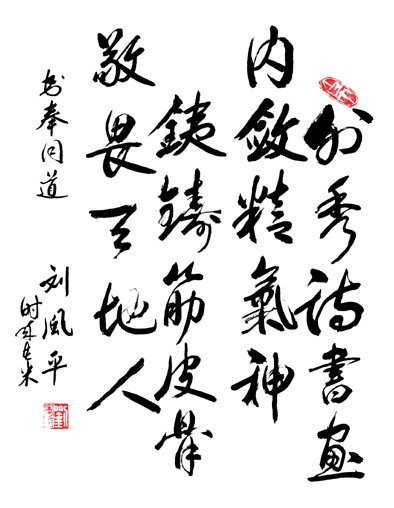 外秀诗書画
内斂精氣神
銕鑄筋皮骨
敬畏天地人
书奉同道
刘風平
时年